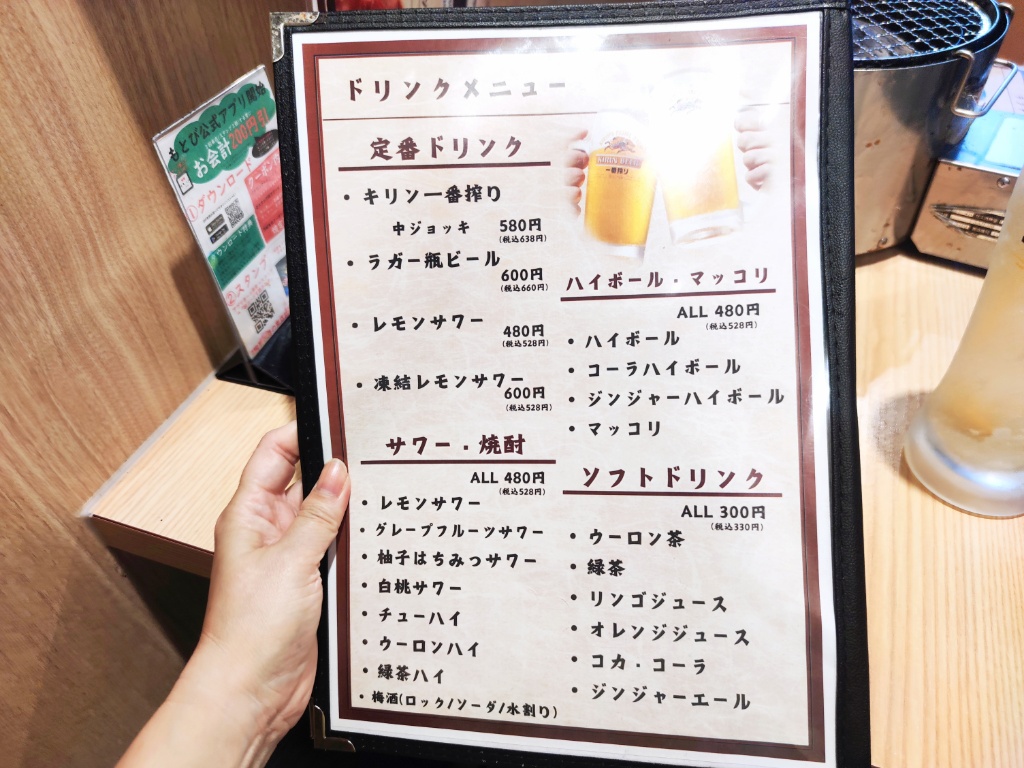 ドリンクメニュー
定番ドリンク
・キリン一番搾り
中ジョッキ 580円
(税込638円)
・ラガー瓶ビール
600円
(税込660円)
・レモンサワー
480円
(税込528円)
・凍結レモンサワー
600円
(税込528円)
サワー・焼酎
ALL 480円
(税込528円)
・レモンサワー
・グレープフルーツサワー
・柚子はちみつサワー
・白桃サワー
・チューハイ
・ウーロンハイ
・緑茶ハイ
・梅酒(ロック/ソーダ/水割り)
KIRIN BEER
一番搾り
ハイボール・マッコリ
ALL 480円
(税込528円)
・ハイボール
・コーラハイボール
・ジンジャーハイボール
・マッコリ
ソフトドリンク
ALL 300円
(税込330円)
・ウーロン茶
・緑茶
・リンゴジュース
・オレンジジュース
・コカ・コーラ
・ジンジャーエール
もとび公式アプリ開始
お会計200円引
①ダウンロード